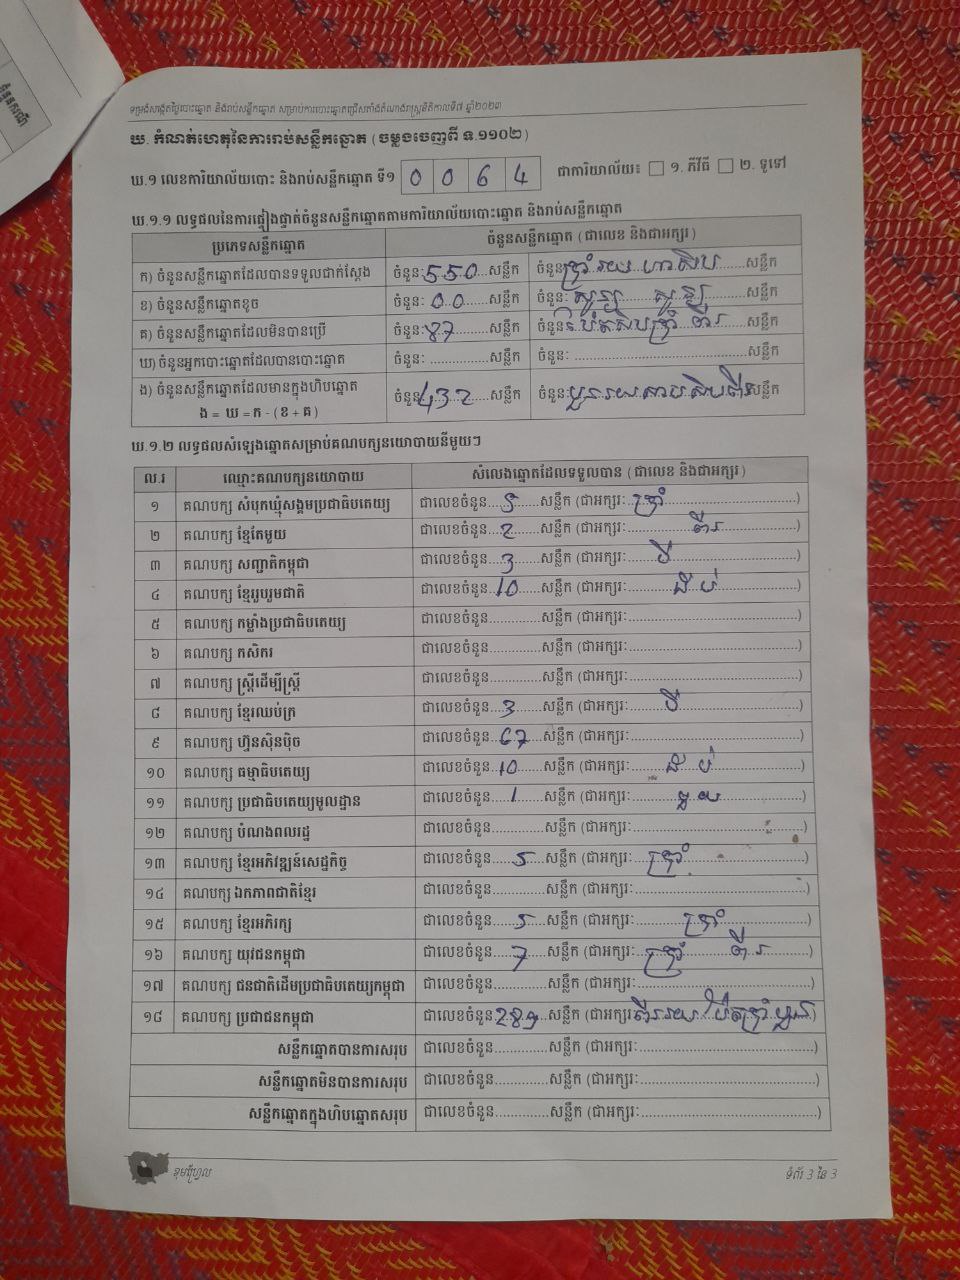 ទម្រង់សង្កេតថ្ងៃបោះឆ្នោត និងរាប់សន្លឹកឆ្នោត សម្រាប់ការបោះឆ្នោតជ្រើសតាំងតំណាងរាស្ត្រនីតិកាលទី៧ ឆ្នាំ២០២៣
ឃ. កំណត់ហេតុនៃការរាប់សន្លឹកឆ្នោត (ចម្លងចេញពី ទ.១១០២)
ឃ.១ លេខការិយាល័យបោះ និងរាប់សន្លឹកឆ្នោត ទី១ 0 0 6 4 ជាការិយាល័យ៖ ☐ ១. ភីវីធី ☐ ២. ទូទៅ
ឃ.១.១ លទ្ធផលនៃការផ្ទៀងផ្ទាត់ចំនួនសន្លឹកឆ្នោតតាមការិយាល័យបោះឆ្នោត និងរាប់សន្លឹកឆ្នោត
ប្រភេទសន្លឹកឆ្នោត ចំនួនសន្លឹកឆ្នោត (ជាលេខ និងជាអក្សរ)
ក) ចំនួនសន្លឹកឆ្នោតដែលបានទទួលជាក់ស្តែង ចំនួនៈ 550 សន្លឹក ចំនួនៈ ប្រាំរយ ហាសិប សន្លឹក
ខ) ចំនួនសន្លឹកឆ្នោតខូច ចំនួនៈ 00 សន្លឹក ចំនួនៈ សូន្យ សូន្យ សន្លឹក
គ) ចំនួនសន្លឹកឆ្នោតដែលមិនបានប្រើ ចំនួនៈ 87 សន្លឹក ចំនួនៈ ប៉ែតសិបប្រាំពីរ សន្លឹក
ឃ) ចំនួនអ្នកបោះឆ្នោតដែលបានបោះឆ្នោត ចំនួនៈ ...............សន្លឹក ចំនួនៈ ...............សន្លឹក
ង) ចំនួនសន្លឹកឆ្នោតដែលមានក្នុងហិបឆ្នោត ចំនួន 432 សន្លឹក ចំនួនៈ បួនរយសាមសិបពីរ សន្លឹក
ង = ឃ = ក - (ខ + គ)
ឃ.១.២ លទ្ធផលសំឡេងឆ្នោតសម្រាប់គណបក្សនយោបាយនីមួយៗ
ល.រ ឈ្មោះគណបក្សនយោបាយ សំលេងឆ្នោតដែលទទួលបាន (ជាលេខ និងជាអក្សរ)
១ គណបក្ស សំបុកឃ្មុំសង្គមប្រជាធិបតេយ្យ ជាលេខចំនួន 5 សន្លឹក (ជាអក្សរៈ ប្រាំ)
២ គណបក្ស ខ្មែរតែមួយ ជាលេខចំនួន 2 សន្លឹក (ជាអក្សរៈ ពីរ)
៣ គណបក្ស សញ្ជាតិកម្ពុជា ជាលេខចំនួន 3 សន្លឹក (ជាអក្សរៈ បី)
៤ គណបក្ស ខ្មែររួបរួមជាតិ ជាលេខចំនួន 10 សន្លឹក (ជាអក្សរៈ ដប់)
៥ គណបក្ស កម្លាំងប្រជាធិបតេយ្យ ជាលេខចំនួន.............សន្លឹក (ជាអក្សរៈ...............)
៦ គណបក្ស កសិករ ជាលេខចំនួន.............សន្លឹក (ជាអក្សរៈ...............)
៧ គណបក្ស ស្ត្រីដើម្បីស្ត្រី ជាលេខចំនួន.............សន្លឹក (ជាអក្សរៈ...............)
៨ គណបក្ស ខ្មែរឈប់ក្រ ជាលេខចំនួន 3 សន្លឹក (ជាអក្សរៈ បី)
៩ គណបក្ស ហ៊្វុនស៊ិនប៉ិច ជាលេខចំនួន 67 សន្លឹក (ជាអក្សរៈ...............)
១០ គណបក្ស ធម្មាធិបតេយ្យ ជាលេខចំនួន 10 សន្លឹក (ជាអក្សរៈ ដប់)
១១ គណបក្ស ប្រជាធិបតេយ្យមូលដ្ឋាន ជាលេខចំនួន 1 សន្លឹក (ជាអក្សរៈ មួយ)
១២ គណបក្ស បំណងពលរដ្ឋ ជាលេខចំនួន.............សន្លឹក (ជាអក្សរៈ...............)
១៣ គណបក្ស ខ្មែរអភិវឌ្ឍន៍សេដ្ឋកិច្ច ជាលេខចំនួន 5 សន្លឹក (ជាអក្សរៈ ប្រាំ)
១៤ គណបក្ស ឯកភាពជាតិខ្មែរ ជាលេខចំនួន.............សន្លឹក (ជាអក្សរៈ...............)
១៥ គណបក្ស ខ្មែរអភិរក្ស ជាលេខចំនួន 5 សន្លឹក (ជាអក្សរៈ ប្រាំ)
១៦ គណបក្ស យុវជនកម្ពុជា ជាលេខចំនួន 7 សន្លឹក (ជាអក្សរៈ ប្រាំ ពីរ)
១៧ គណបក្ស ជនជាតិដើមប្រជាធិបតេយ្យកម្ពុជា ជាលេខចំនួន.............សន្លឹក (ជាអក្សរៈ...............)
១៨ គណបក្ស ប្រជាជនកម្ពុជា ជាលេខចំនួន 289 សន្លឹក (ជាអក្សរ ពីររយ ប៉ែតប្រាំបួន)
សន្លឹកឆ្នោតបានការសរុប ជាលេខចំនួន.............សន្លឹក (ជាអក្សរៈ...............)
សន្លឹកឆ្នោតមិនបានការសរុប ជាលេខចំនួន.............សន្លឹក (ជាអក្សរៈ...............)
សន្លឹកឆ្នោតក្នុងហិបឆ្នោតសរុប ជាលេខចំនួន.............សន្លឹក (ជាអក្សរៈ...............)
ខុមហ្វ្រែល
ទំព័រ 3 នៃ 3